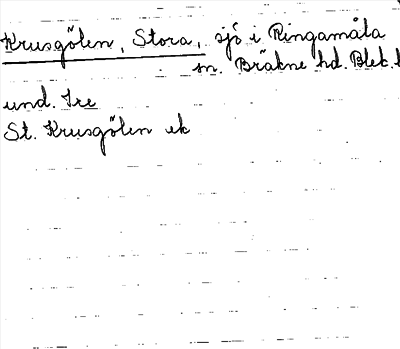 Krusgölen, Stora, sjö i Ringamåla
sn. Bräkne hd. Blek.
und. Ire
St. Krusgölen ek